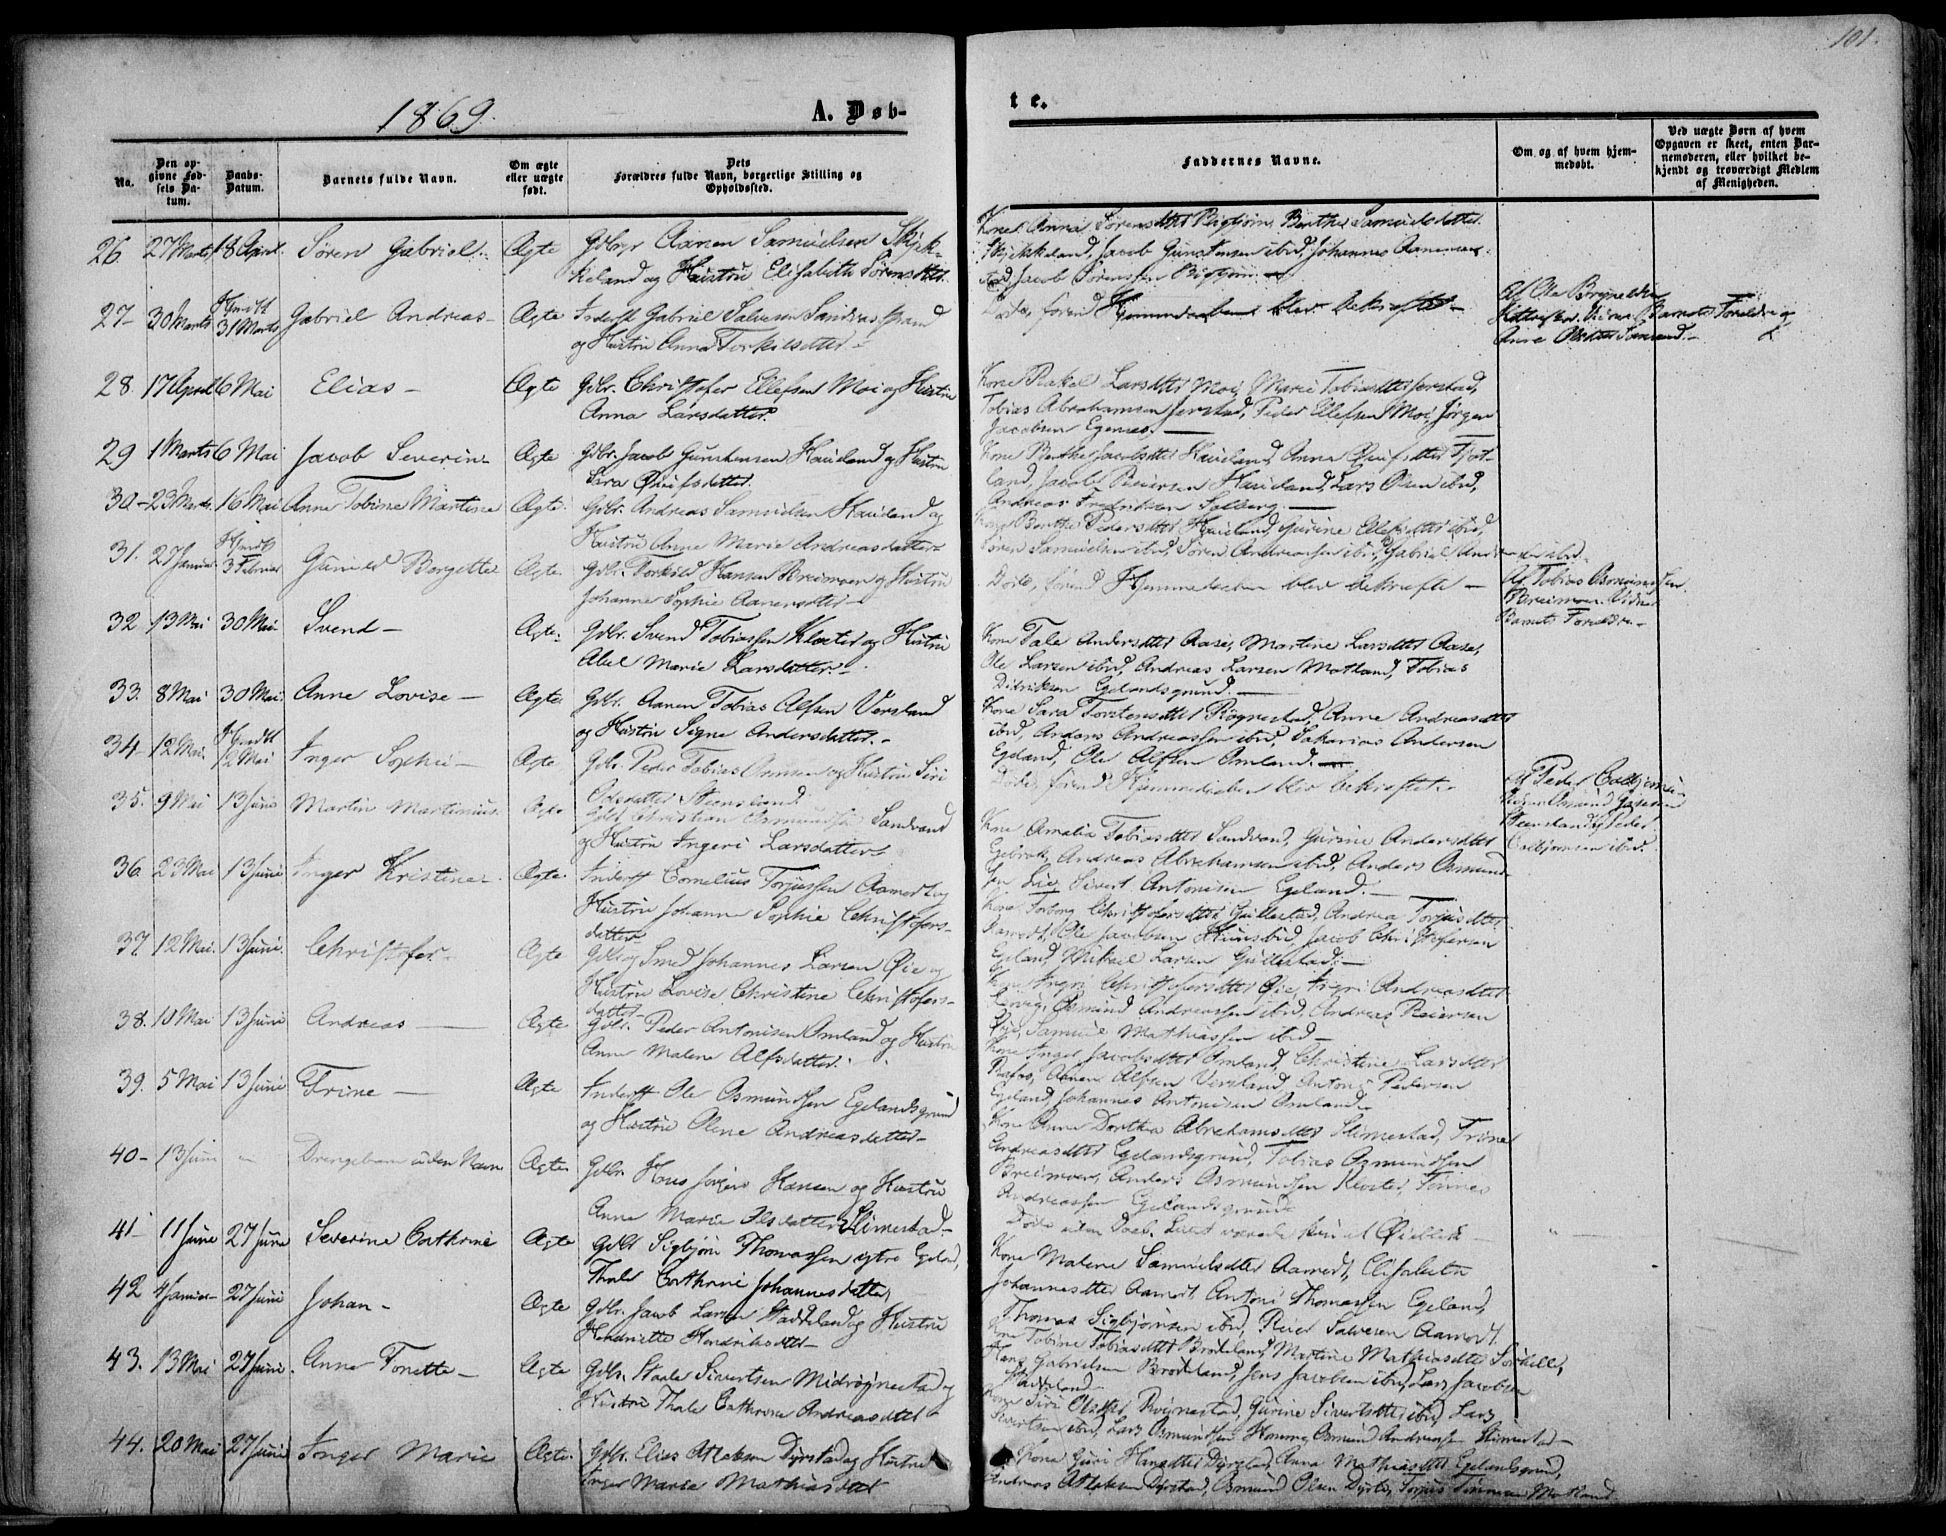 101.
1869.
A. Døb-
te.
No.
Den op-
givne Fød-
sels Da-
tum.
Daabs-
Datum.
Barnets fulde Navn.
Om ægte
eller uægte
født.
Dets
Forældres fulde Navn, borgerlige Stilling og
Opholdssted.
Faddernes Navne.
Om og af hvem hjem-
medøbt.
Ved uægte Børn af hvem
Opgaven er skeet, enten Bar-
nemoderen, eller hvilket be-
kjendt og troværdigt Medlem
af Menigheden.
26 27 Marts 18 April Søren Gabriel Ægte Gdbgr Aanen Samuelsen Skjek-
keland og Hustru Elisabeth Sørensdtr
Kone Anna Sørensdtter Bigtjøn, Berthe Samuelsdetter
Skjekkeland, Jacob Gunstensen ibid, Johannes Aanensen
ibid, Jacob Sørensen Bigtjøn
27 30 Marts Hjmdt 31 Marts Gabriel Andreas Ægte Inderst Gabriel Salvesen Sandnes Strand
og Hustru Anna Torkilsdetter
Døde, førend Hjemmedaaben blev bekræftet
Af Ole Brynildsen
Vidner Barnets Forældre og
Anne Olsdatter
28 17 April 6 Mai Elias Ægte Gdbr. Christofer Ellefsen Moi og Hustru
Anna Larsdatter
Kone Rakel Larsdtter Moi, Marie Tobiasdtter Jerstad,
Tobias Abrahamsen Jerstad, Peder Ellefsen Moi, Jørgen
Jacobsen Egenes
29 1 Marts 6 Mai Jacob Severin Ægte Gdbr. Jacob Gunstensen Haueland og Hustru
Sira
Kone Berthe Jacobsdtter Haueland, Anna
land, Jacob Reiersen Haueland, Lars Olsen ibid,
Andreas Fredriksen Solberg
30 23 Marts 16 Mai Anne Tobine Martine Ægte Gdbr. Andreas Samuelsen Haueland og
Hustru Anne Marie Andreasdatter
Kone Berthe Pedersdtter Haueland, Gurine Ellefsdtter ibid,
Søren Samuelsen ibid, Søren Andreassen ibid, Gabriel
31. 27 Januar Hjmdt 3 Februar Gunild Borgette Ægte Gdbr. Torkild Hansen Breimoen og Hustru
Johanne Sophie Aanensdtter
Døde, førend Hjemmedaaben blev bekræftet
Af Tobias Osmundsen
Breimoen. Vidner
Barnets Forældre
32 13 Mai 30 Mai Svend Ægte Gdbr. Svend Tobiassen Kloster og Hustru
Abel Marie Larsdatter
Kone Tale Andersdtter Aase, Martine Larsdtter Aase,
Ole Larsen ibid, Andreas Larsen Motland, Tobias
Didriksen Egelandsgrund
33. 8 Mai 30 Mai Anne Lovise Ægte Gdbr. Aanen Tobias Alfsen Versland
og Hustru Signe Andersdatter
Kone Sara Torstensdtter Røgnestad, Anne Andreasdtter
ibid, Anders Andreassen ibid, Sakarias Andersen
Egeland, Ole Alfsen Omland
34. 12 Mai Hjmdt 12 Mai Inger Sophie Ægte Gdbr. Peder Tobias Osmundsen og Hustru Siri
Osdatter Steensland
Døde, førend Hjemmedaaben blev bekræftet
Af Peder
Steensland, Peder
ibid.
35. 9 Mai 13 Juni Martin Martinius Ægte Gdbr Christian Osmundsen Sandvand
og Hustru Ingeri Larsdatter
Kone Amalia Tobiasdtter Sandvand, Gurine Andersdtter
Egebrok, Andreas Abrahamsen ibid, Anders Osmund-
sen Lie, Sivert Antonisen Egeland
36. 23 Mai 13 Juni Inger Kristine Ægte Inderst Cornelius Torjussen Aamodt og
Hustru Johanne Sophie Christofers-
datter
Kone Torborg Christofersdtter Gullestad, Andrea Torjusdtter
Aamodt, Ole Jacobsen Hunsbed, Jacob Christofersen
Egeland, Mikael Larsen Gullestad
37. 12 Mai 13 Juni Christofer Ægte Gdbr og Smed Johannes Larsen Øie og
Hustru Lovise Christine Christofers-
datter
Kone Ingri Christofersdtter Øie, Ingri Andreasdtter
Lervig, Osmund Andreassen ibid, Andreas Reiersen
Øie, Samuel Mathiassen ibid
38. 10 Mai 13 Juni Andreas Ægte Gdbr. Peder Antonisen Omland og Hustru
Anne Malene Alfsdatter
Kone Inger Jacobsdtter Omland, Christine Larsdtter
Aanen Alfsen Versland, Anton Pedersen
Egeland, Johannes Antonisen Omland
39. 5 Mai 13 Juni Trine Ægte Inderst Ole Osmundsen Egelandsgrund
og Hustru Olene Andreasdetter
Kone Anne Dorthea Abrahamsdtter Slimestad, Trine
Andreasdtter Egelandsgrund, Tobias Osmundsen
Breimoen, Anders Osmundsen Kloster, Tønnes
Andreassen Egelandsgrund
40 13 Juni " Drengebarn uden Navn Ægte Gdbr. Hans Jørgen Hansen og Hustru
Anne Marie Olsdatter Slimestad
Døde uden Daab. Livet varede kun et Øieblik
41 11 June 27 June Severine Cathrine Ægte Gdbr Sigbjørn Thomassen ytre Egeland,
Thale Cathrine Johannesdetter
Kone Malene Samuelsdtter Aamodt, Elisabeth
Johannesdtter Aamodt, Antoni Thomassen Egeland,
Thomas Sigbjørnsen ibid, Reier Salvesen Aamodt
42 4 Januar 27 Juni Johan Ægte Gdbr. Jacob Larsen Haddeland og Hustru
Henriette Hendriksdtter
Kone Tobine Tobiasdtter Brødeland, Martine Mathiasdtter
Hans Gabrielsen Brødeland, Jens Jacobsen ibid, Lars Jacobsen
Haddeland
43. 13 Mai 27 Juni Anne Tonette Ægte Gdbr. Staale Sivertsen Midrøgnestad og
Hustru Thale Cathrine Andreasdtter
Kone Siri Olsdtter Røgnestad, Gurine Sivertsdtter ibid, Lars
Sivertsen ibid, Lars Osmundsen Homme, Osmund Andreassen Slimestad
44. 20 Mai 27 Juni Inger Marie Ægte Gdbr. Elias Atlaksen Dyrstad og Hustru
Inger Marie Mathiasdtter
Kone Guri Hansdtter Dyrstad, Anna Mathiasdtter Egelandsgrund,
Andreas Atlaksen Dyrstad, Osmund Olsen Dyrstad, Torjus Tønnesen Motland